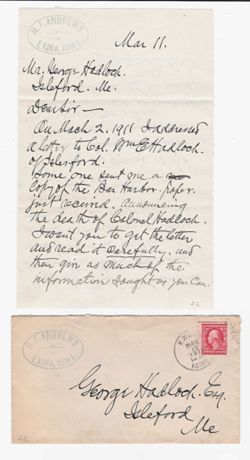 H. F. ANDREWS
EXIRA, IOWA.
Mar 11.
Mr. George Hadloch.
Isleford. Me.
Dear Sir—
On Mach 2, 1911 I addressed
a letter to Col. Wm E Hadloch.
of Isleford.
Some one sent me a
copy of the Bar Harbor paper
just received, announcing
the death of Colonel Hadloch.
I want you to get the letter
and read it carefully, and
then give as much of the
information sought as you can.
22
H. F. ANDREWS
EXIRA, IOWA.
George Hadloch. Esq.
Isleford
Me
22